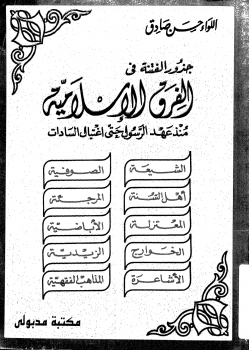 اللواء حسن صادق
جذور الفتنة في
الفرق الإسلامية
منذ عهد الرسول حتى اغتيال السادات
الشيعة
الصوفية
أهل السنة
المرجئة
المعتزلة
الأباضية
الخوارج
الزيدية
الأشاعرة
المذاهب الفقهية
مكتبة مدبولى